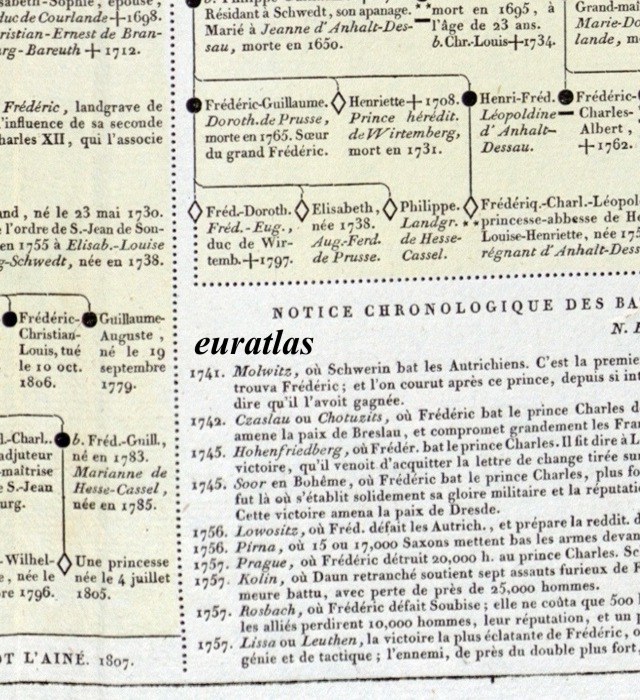 sabeth-Sophie, épouse,
duc de Courlande+1698.
ristian-Ernest de Bran-
rg-Bareuth + 1712.
Résidant à Schwedt, son apanage.
Marié à Jeanne d'Anhalt-Des-
sau, morte en 1650.
mort en 1695, à
l'âge de 23 ans.
b.Chr.-Louis+1734.
Grand-maî
Marie-Do
lande, m
Frédéric, landgrave de
l'influence de sa seconde
harles XII, qui l'associe
Frédéric-Guillaume.
Doroth. de Prusse,
morte en 1765. Sœur
du grand Frédéric.
Henriette+1708.
Prince hérédit.
de Wirtemberg,
mort en 1731.
Henri-Fréd.
Léopoldine
d'Anhalt-
Dessau.
Frédéric-
Charles-
Albert,
+1762.
and, né le 23 mai 1730.
e l'ordre de S.-Jean de Son-
en 1755 à Elisab.-Louise
g-Schwedt, née en 1738.
Fréd.-Doroth.
Fréd.-Eug.,
duc de Wir-
temb.+1797.
Elisabeth,
née 1738.
Aug.-Ferd.
de Prusse.
Philippe.
Landgr.
de Hesse-
Cassel.
Frédériq.-Charl.-Léopol
princesse-abbesse de He
Louise-Henriette, née 175
régnant d'Anhalt-Dess
Frédéric-
Christian-
Louis, tué
le 10 oct.
1806.
Guillaume-
Auguste,
né le 19
septembre
1779.
l.-Charl..
adjuteur
maîtrise
e S.-Jean
urg.
b. Fréd.-Guill.,
né en 1783.
Marianne de
Hesse-Cassel,
née en 1785.
-Wilhel-
e, née le
re 1796.
Une princesse
née le 4 juillet
1805.
OT L'AINÉ. 1807.
NOTICE CHRONOLOGIQUE DES BA
N. B
euratlas
1741. Molwitz, où Schwerin bat les Autrichiens. C'est la premie
trouva Frédéric; et l'on courut après ce prince, depuis si int
dire qu'il l'avoit gagnée.
1742. Czaslau ou Chotuzits, où Frédéric bat le prince Charles d
amene la paix de Breslau, et compromet grandement les Fran
1745. Hohenfriedberg, où Fréder. bat le prince Charles. Il fit dire à L
victoire, qu'il venoit d'acquitter la lettre de change tirée sur
1745. Soor en Bohême, où Frédéric bat le prince Charles, plus fo
fut là où s'établit solidement sa gloire militaire et la réputatio
Cette victoire amena la paix de Dresde.
1756. Lowositz, où Fréd. défait les Autrich., et prépare la reddit. d
1756. Pirna, où 15 ou 17,000 Saxons mettent bas les armes devan
1757. Prague, où Frédéric détruit 20,000 h. au prince Charles. Sc
1757. Kolin, où Daun retranché soutient sept assauts furieux de F
meure battu, avec perte de près de 25,000 hommes.
1757. Rosbach, où Frédéric défait Soubise; elle ne coûta que 500 h
les alliés perdirent 10,000 hommes, leur réputation, et un p
1757. Lissa ou Leuthen, la victoire la plus éclatante de Frédéric, o
génie et de tactique; l'ennemi, de près du double plus fort,